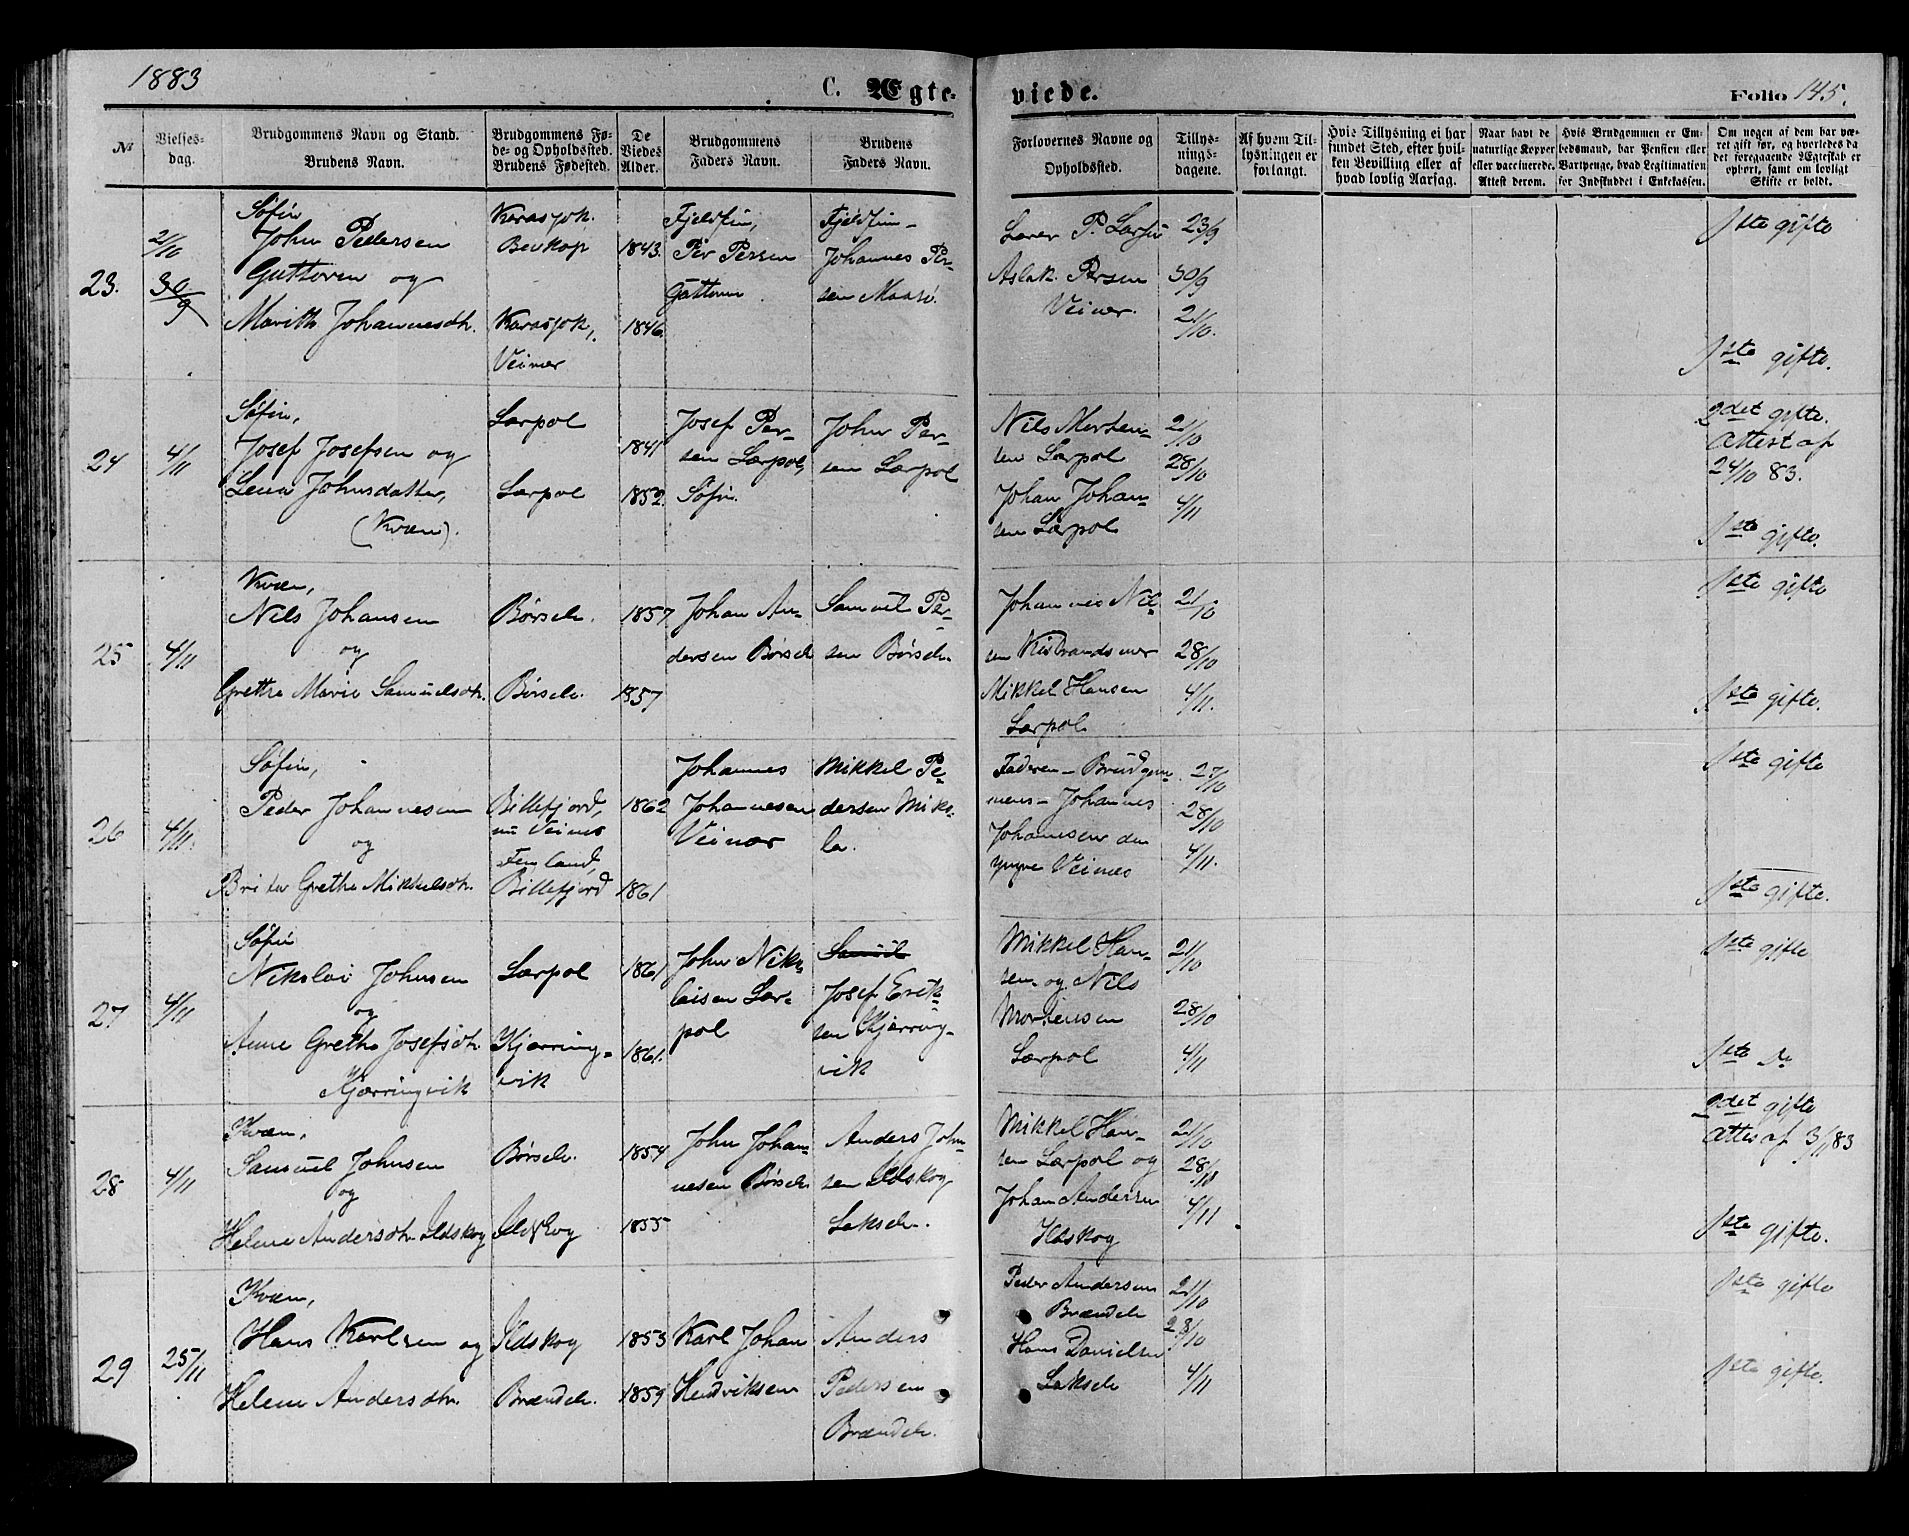 1883
C. Ægte-
viede.
Folio 145.
№
Vielses-
dag.
Brudgommens Navn og Stand.
Brudens Navn.
Brudgommens Fø-
de- og Opholdsted.
Brudens Fødested.
De
Viedes
Alder.
Brudgommens
Faders Navn.
Brudens
Faders Navn.
Forlovernes Navne og
Opholdsted.
Tillys-
nings-
dagene.
Af hvem Til-
lysningen er
forlangt.
Hvis Tillysning ei har
fundet Sted, efter hvil-
ken Bevilling eller af
hvad lovlig Aarsag.
Naar havt de
naturlige Kopper
eller vaccinerede.
Attest derom.
Hvis Brudgommen er Em-
bedsmand, har Pension eller
Vartpenge, hvad Legitimation
for Indskuddet i Enkekassen.
Om nogen af dem har væ-
ret gift før, og hvorledes da
det foregaaende Ægteskab er
ophørt, samt om lovligt
Skifte er holdt.
23.
2/10
30/9
Søfin
John Pedersen
Guttoren og
Marith Johannesdtr.
Karasjok.
Karasjok,
Veinær
1843.
1846.
Fjeldfin,
Per Persen
Fjeldfin-
Johannes Per-
sen
Lærer P.
Aslak Persen
Veinær.
23/9
30/9
2/10.
1ste gifte
1ste gifte.
24
4/11
Søfin,
Josef Josefsen og
Lena Johnsdatter,
(Kvæn).
Lærpol
Lærpol
1841
1852.
Josef Per-
sen Lærpol,
Søfin.
John Per-
sen Lærpol
Nils Morten-
sen Lærpol
Johan Johan-
sen Lærpol
21/10
28/10
4/11
2det gifte.
Attest af
24/10 83.
1ste gifte.
25
4/11
Kvæn,
Nils Johansen
og
Grethe Marie Samuelsdtr.
Børselv.
Børselv.
1857
1857
Johan An-
dersen Børselv
Samuel Per-
sen Børselv.
Johannes Nil-
sen Kistrandsnær
Mikkel Hansen
Lærpol.
21/10
28/10
4/11.
1ste gifte
1ste gifte.
26
4/11.
Søfin,
Peder Johannesen
og
Brita Grethe Mikkelsdtr.
Billefjord,
nu Veines
Billefjord
1862
1861
Johannes
Johannesen
Veinær
Mikkel Pe-
dersen
Faderen - Brudgom-
mens - Johannes
Johansen den
yngre Veines
27/10
28/10
4/11.
1ste gifte
1ste gifte.
27
4/11
Søfin
Nikolai Johnsen
og
Anne Grethe Josefsdtr.
Kjærringvik
Lærpol
Kjærring-
vik
1861
1861.
John Niko-
laisen Lær-
pol
Samuel
Josef Erik-
sen Kjærring-
vik
Mikkel Han-
sen og Nils
Mortensen
Lærpol
21/10
28/10
4/11
1ste gifte
1ste do
28
4/11
Kvæn,
Samuel Johnsen
og
Helene Andersdtr. Ildskog
Børselv.
Ildskog
1854
1855
John Johan-
nesen Børselv
Anders John-
sen Ildskog
Lakselv.
Mikkel Han-
sen Lærpol og
Johan Andersen
Ildskog
21/10
28/10
4/11
2det gifte
Attest af 3/11 83
1ste gifte.
29
25/11
Kvæn,
Hans Karlsen og
Helene Andersdtr.
Ildskog
Brændelv.
1853
1859
Karl Johan
Hendriksen
Anders
Pedersen
Brændelv.
Peder Andersen
Brændelv
Hans Danielsen
Lakselv
21/10
28/10
4/11
1ste gifte
1ste gifte.